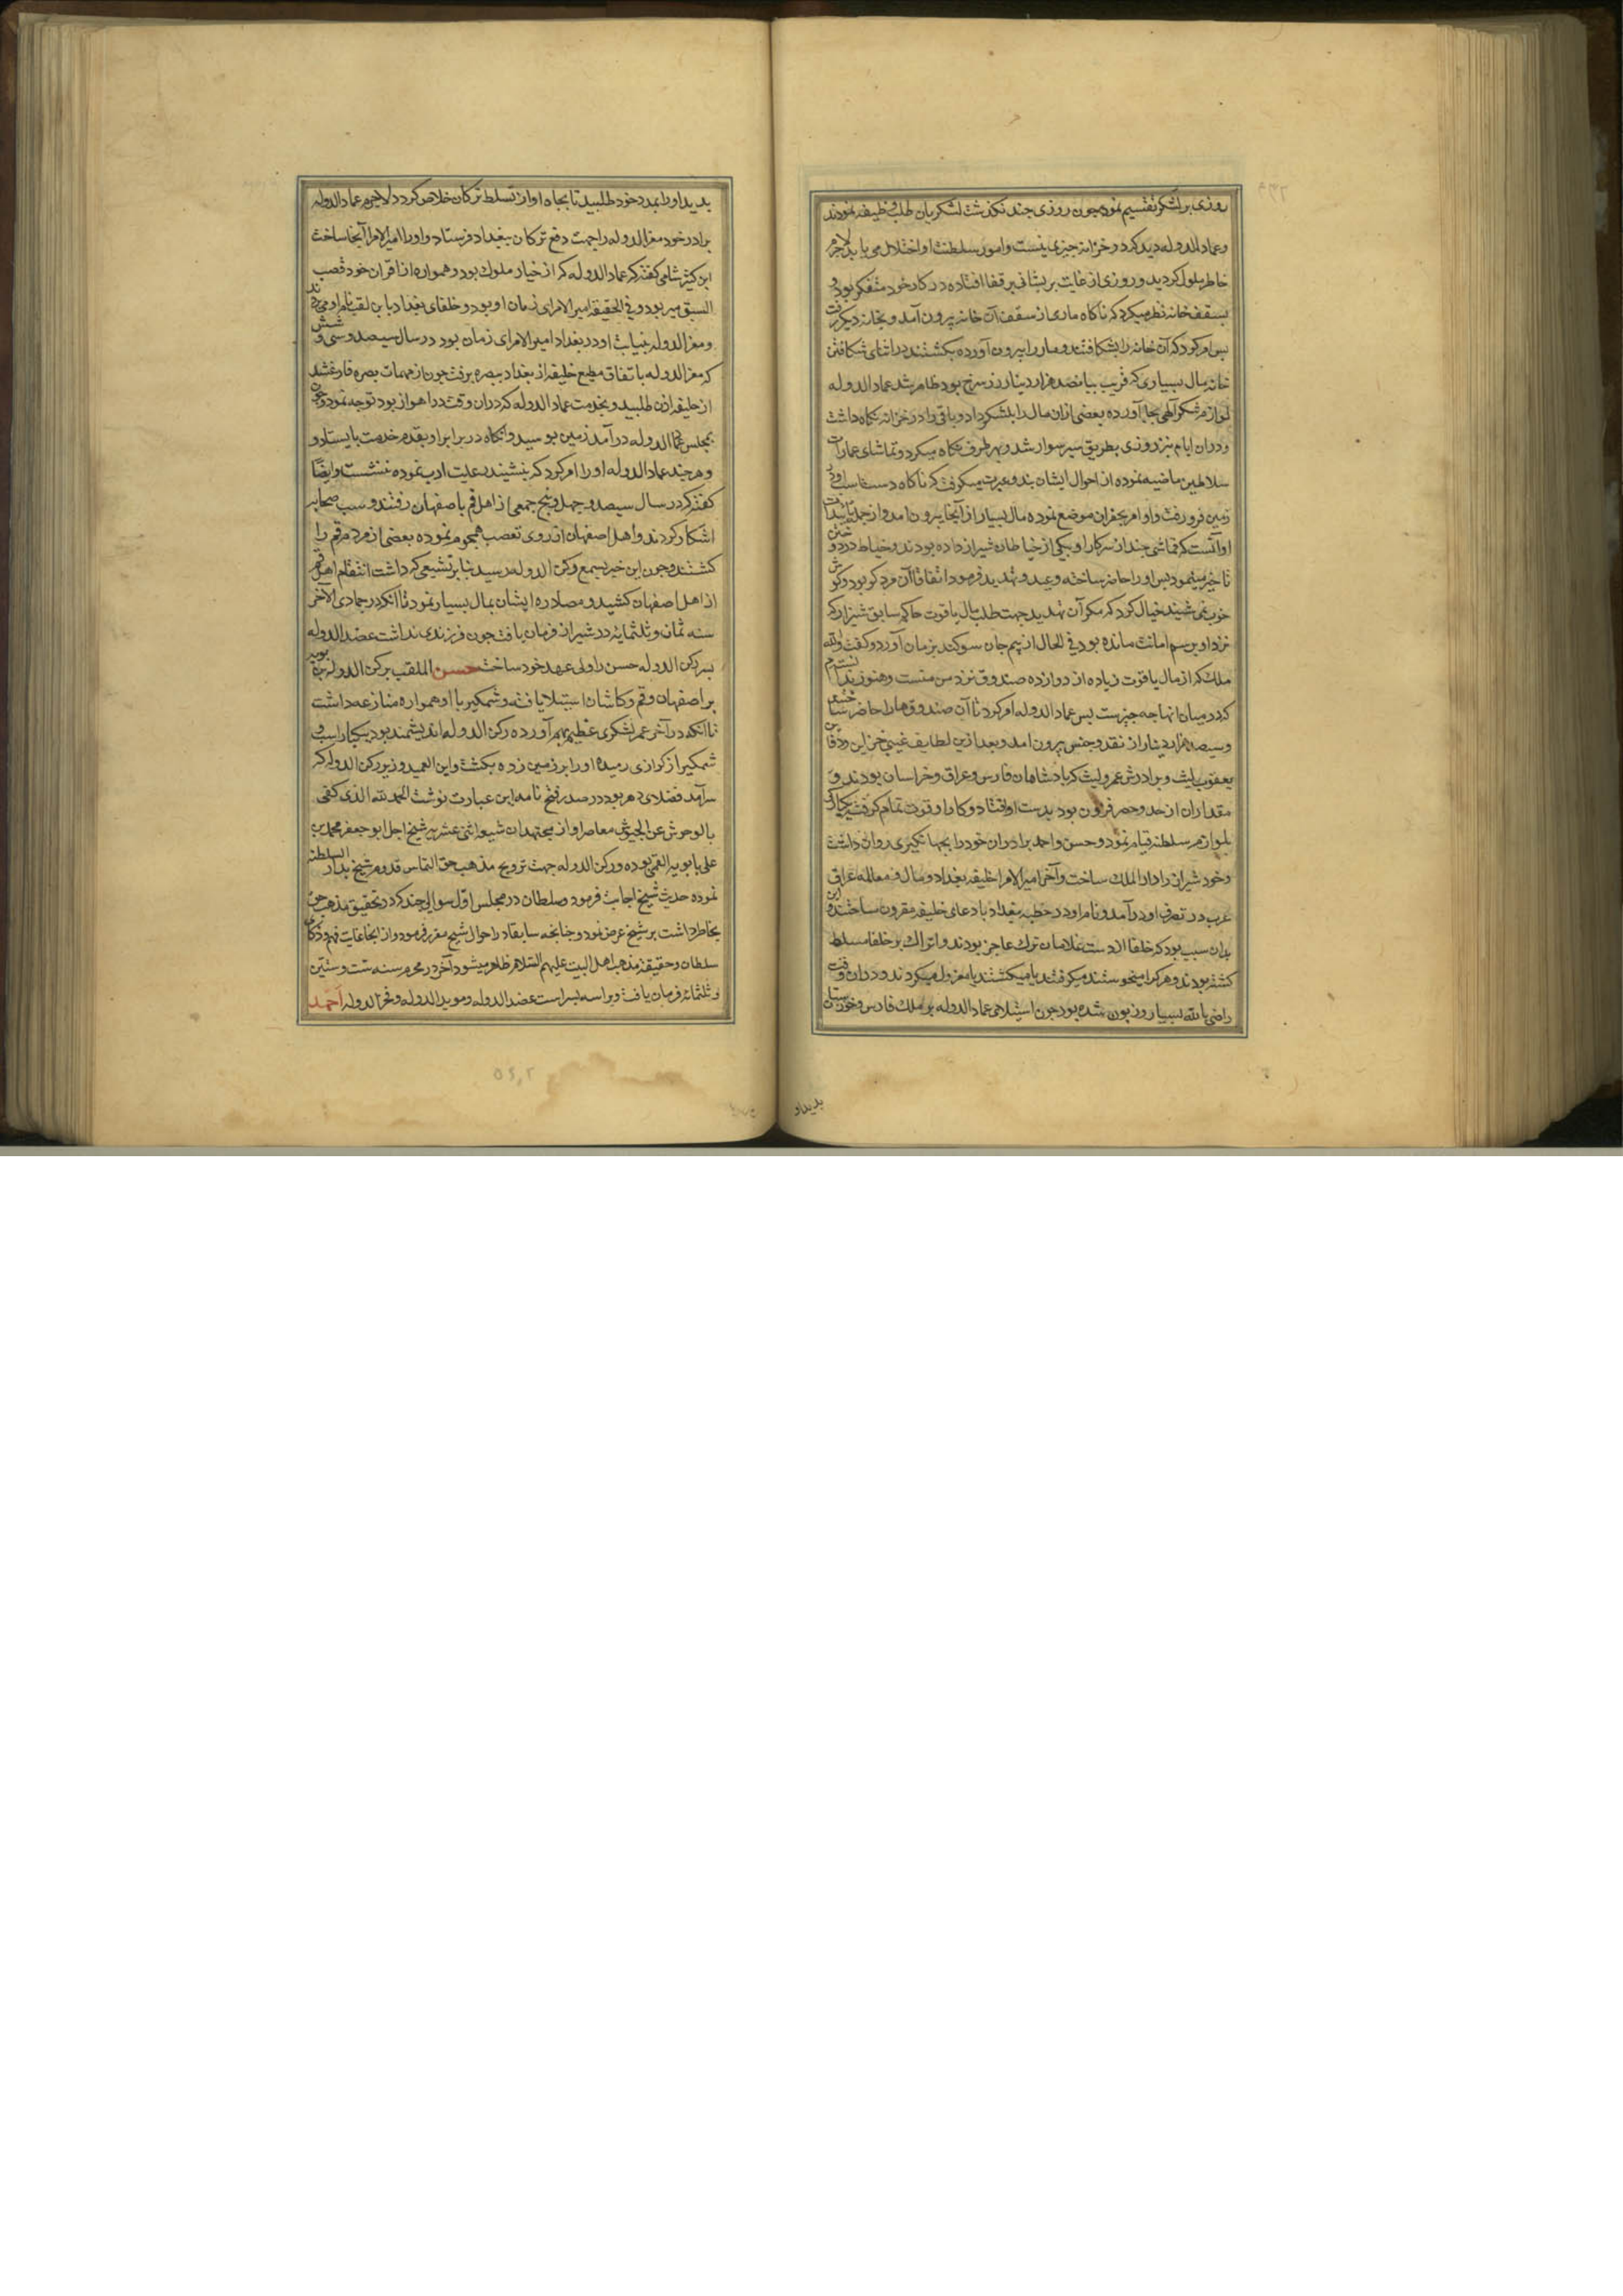 روزی بر لشکر تقسیم نمود چون روزی چند نکذشت لشکریان طلب وظیفه نمودند
وعماد الدوله دید که در خزانه چیزی نیست وامور سلطنت او اختلال می یابد لاجرم
خاطر ملول کردید و روزی از غایت پریشانی بر قفا افتاده در کار خود متفکر بود و
بسقف خانه نظر میکرد که ناکاه ماری از سقف آن خانه بیرون آمد و بخانه دیکر رفت
پس امر کرد که آن خانه را بشکافتند و مار را بیرون آورده بکشتند در اثنای شکافتن
خانه مال بسیاری که قریب بپانصد هزار دینار زر سرخ بود ظاهر شد عماد الدوله
لوازم شکر آلهی بجا آورده بعضی از ان مال را بلشکر داد و باقی را در خزانه نکاه داشت
ودران ایام نیز روزی بطریق سیر سوار شد و بهر طرف نکاه میکرد و تماشای عمارات
سلاطین ماضیه نموده از احوال ایشان پند و عبرت میکرفت که ناکاه دست اسب او در
زمین فرو رفت و او امر بحفر ان موضع نموده مال بسیار از آنجا بیرون امد و از جمله
او آنست که قماشی چند از سرکار او بیکی از خیاطان شیراز داده بودند و خیاط در دوختن
تاخیر مینمود پس او را حاضر ساخته وعید و تهدید فرمود اتفاقا آن مرد کر بود و کوش
خوب نمی شنید خیال کرد که مکر آن تهدید جهت طلب مال یاقوت حاکم سابق شیراز که
نزد او برسم امانت مانده بود فی الحال از بیم جان سوکند بزبان آورد و کفت والله
ملک که از مال یاقوت زیاده از دوازده صندوق نزد من نیست و هنوز ندانستم
که در میان انها چه چیزست پس عماد الدوله امر کرد تا آن صندوقها را حاضر ساختند
وسیصد هزار دینار از نقد و جنس بیرون امد و بعد ازین لطایف غیبی خزاین و دفاین
یعقوب لیث و برادرش عمرو لیث که پادشاهان فارس وعراق وخراسان بودند و
مقدار ان از حد و حصر فزون بود بدست او افتاد و کار او قوت تمام کرفت
بلوازم سلطنه قیام نمود و حسن و احمد برادران خود را بجهانکیری روان داشت
وخود شیراز را دار الملک ساخت و آخر امیر الامرا خلیفه بغداد و مال و معامله عراق
عرب در تصرف او در آمد و نام او در خطبه بغداد با دعای خلیفه مقرون ساختند و این
بدان سبب بود که خلفا از دست غلامان ترک عاجز بودند و اتراک بر خلفا مسلط
کشته بودند و هر کرا میخواستند میکرفتند یا میکشتند یا معزول میکردند و دران وقت
راضی بالله بسیار زبون شده بود چون استیلای عماد الدوله بر ملک فارس و خوزستان
بدید او
بدید او را بمدد خود طلبید تا بجاه او از تسلط ترکان خلاص کردد لاجرم عماد الدوله
برادر خود معز الدوله را جهت دفع ترکان ببغداد فرستاد و او را امیر الامرا آنجا ساخت
ابن کثیر شامی کفته که عماد الدوله که از خیار ملوک بود و همواره از اقران خود قصب
السبق میربود و فی الحقیقه امیر الامرای زمان او بود و خلفای بغداد باین لقب نام او می بردند
ومعز الدوله بنیابت او در بغداد امیر الامرای زمان بود در سال سیصد و سی و شش
که معز الدوله باتفاق مطیع خلیفه از بغداد ببصره برفت چون از مهمات بصره فارغ شد
از خلیفه اذن طلبید و بخدمت عماد الدوله که دران وقت در اهواز بود توجه نمود و چون
بمجلس عماد الدوله در آمد زمین بوسید و انکاه در برابر او بقدم خدمت بایستاد و
وهر چند عماد الدوله او را امر کرد که بنشیند رعایت ادب نموده ننشست و ایضا
کفته که در سال سیصد و چهل و پنج جمعی از اهل قم باصفهان رفتند و سب صحابه
اشکار کردند و اهل اصفهان از روی تعصب هجوم نموده بعضی از مردم قم را
کشتند و چون این خبر بسمع رکن الدوله رسید بنابر تشیعی که داشت انتقام اهل قم
از اهل اصفهان کشید و مصادره ایشان بمال بسیار نمود تا آنکه در جمادی الآخر
سنه ثمان و ثلثمایه در شیراز فرمان یافت چون فرزندی نداشت عضد الدوله
پسر رکن الدوله حسن را ولی عهد خود ساخت حسن الملقب برکن الدوله بن بویه
بر اصفهان و قم و کاشان استیلا یافته و شمکیر با او همواره منازعه داشت
تا آنکه در آخر عمر لشکری عظیم بهم آورده رکن الدوله اندیشمند بود بیکبار اسب و
شمکیر از کرازی رمیده او را بر زمین زده بکشت و ابن العمید وزیر رکن الدوله که
سرآمد فضلای دهر بود در صدر فتح نامه این عبارت نوشت الحمد لله الذی کفی
بالوحوش عن الجیوش معاصر او از مجتهدان شیعه اثنی عشریه شیخ اجل ابو جعفر محمد بن
علی بابویه القمی بوده و رکن الدوله جهت ترویج مذهب حق التماس قدوم شیخ بدار السلطنه
نموده حدیث شیخ اجابت فرمود صلطان در مجلس اول سوالی چند که در تحقیق مذهب حق
بخاطر داشت بر شیخ عرض نمود و چنانچه سابقا در احوال شیخ مقرر فرمود و از انجا غایت فهم و ذکای
سلطان و حقیقة مذهب اهل البیت علیهم السلام ظاهر میشود آخر در محرم سنه ست و ستین
وثلثمائه فرمان یافت و برا سه پسر است عضد الدوله و موید الدوله و فخر الدوله احمد